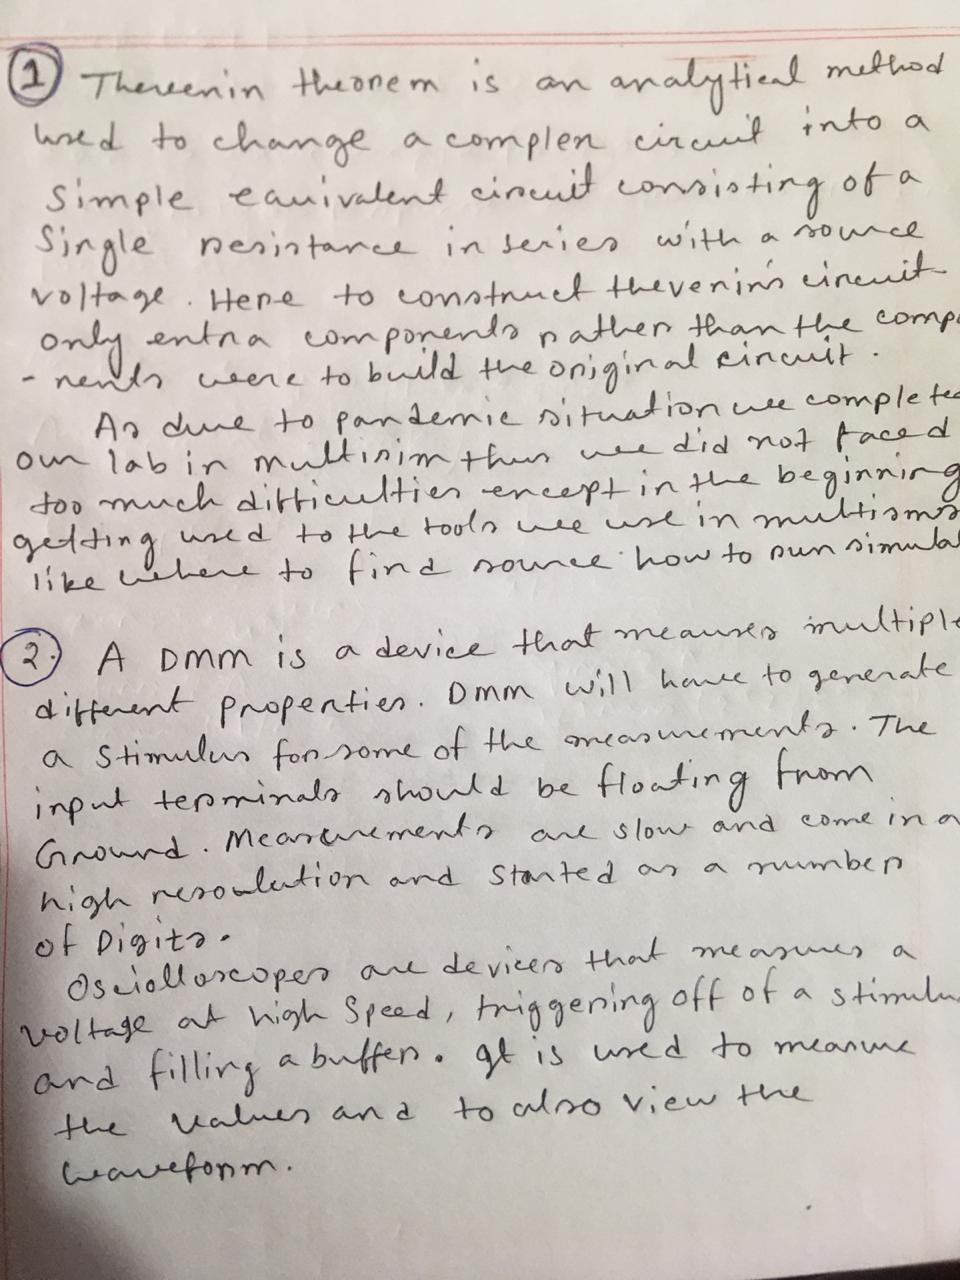 1 Thevenin theorem is an analytical method
used to change a complex circuit into a
simple equivalent circuit consisting of a
single resistance in series with a source
voltage. Here to construct thevenin's circuit
only extra components rather than the comp
- nents were to build the original circuit.
As due to pandemic situation we complete
our lab in multisim thus we did not faced
too much difficulties except in the beginning
getting used to the tools we use in multisims
like where to find source how to run simula
2. A DMM is a device that measures multiple
different properties. DMM will have to generate
a stimulus for some of the measurements. The
input terminals should be floating from
Ground. Measurements are slow and come in a
high resoulution and started as a number
of Digits.
Osciolloscopes are devices that measures a
voltage at high Speed, triggering off of a stimulu
and filling a buffer. It is used to measure
the values and to also view the
waveform.